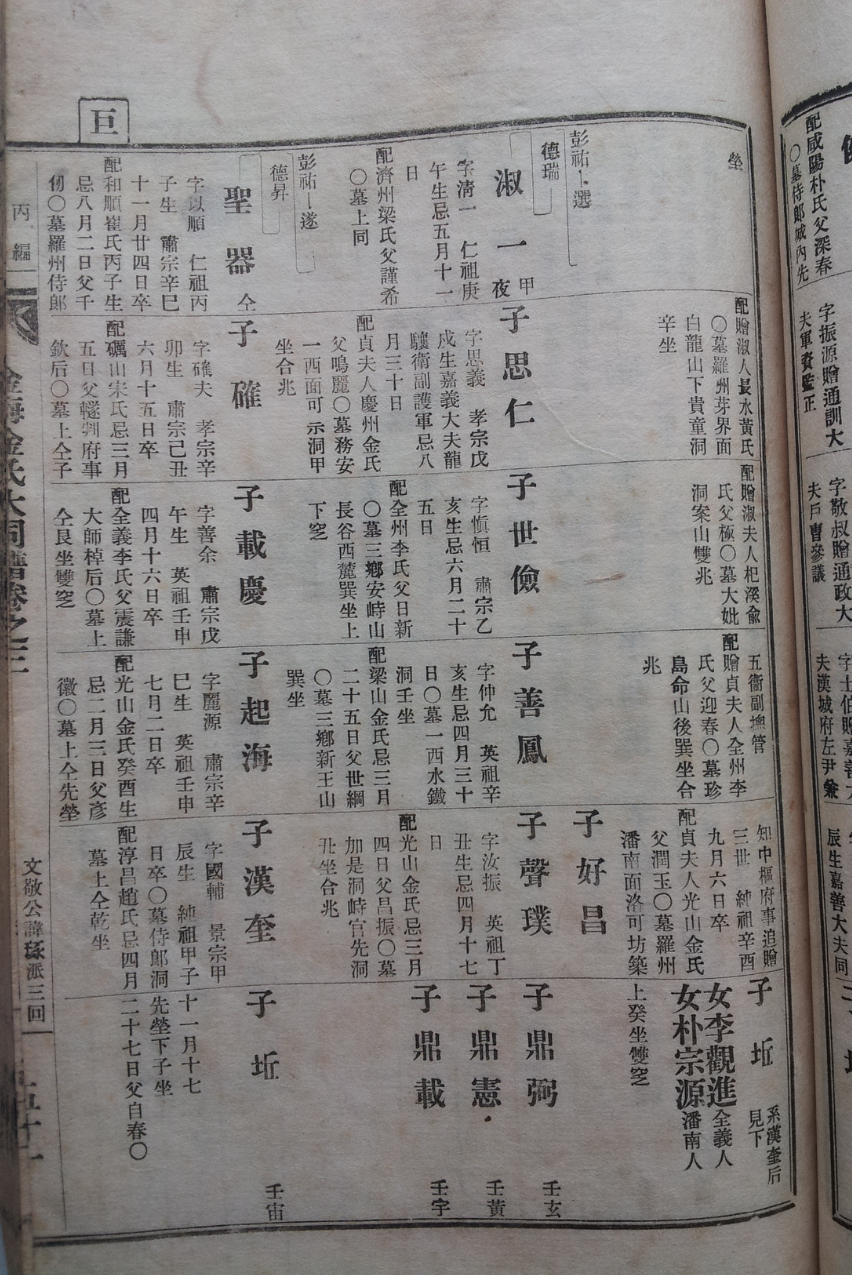 配咸陽朴氏父深春
○墓侍郞城內先
字振源贈通訓大
夫軍資監正
字敬叔贈通政大
夫戶曹參議
字士伯贈嘉善大
夫漢城府左尹兼
辰生嘉善大夫同
巨
塋
彭祐卜選
德瑞
淑一 甲夜
字淸一 仁祖庚
午生忌五月十一
日
配濟州梁氏父謹希
○墓上同
彭祐卜遂
德昇
聖器 仝
字以順 仁祖丙
子生 肅宗辛巳
十一月廿四日卒
配和順崔氏丙子生
忌八月二日父千
仞○墓羅州侍郞
配贈淑人長水黃氏
○墓羅州芽界面
白龍山下貴童洞
辛坐
子思仁
字思義 孝宗戊
戌生嘉義大夫龍
驤衛副護軍忌八
月三十日
配貞夫人慶州金氏
父鳴麗○墓務安
一西面可示洞甲
坐合兆
子確
字確夫 孝宗辛
卯生 肅宗己丑
六月十五日卒
配礪山宋氏忌三月
五日父韄判府事
欽后○墓上仝子
配贈淑夫人杞溪兪
氏父極○墓大妣
洞案山雙兆
子世儉
字愼恒 肅宗乙
亥生忌六月二十
五日
配全州李氏父日新
○墓三鄕安峙山
長谷西麓巽坐上
下窆
子載慶
字善余 肅宗戊
午生 英祖壬申
四月十六日卒
配全義李氏父震謙
大師棹后○墓上
仝艮坐雙窆
五衛副摠管
配贈貞夫人全州李
氏父迎春○墓珍
島命山後巽坐合
兆
子善鳳
字仲允 英祖辛
亥生忌四月三十
日○墓一西水鐵
洞壬坐
配梁山金氏忌三月
二十五日父世綱
○墓三鄕新王山
巽坐
子起海
字麗源 肅宗辛
巳生 英祖壬申
七月二日卒
配光山金氏癸酉生
忌二月三日父彥
徽○墓上仝先塋
知中樞府事追贈
三世 純祖辛酉
九月六日卒
配貞夫人光山金氏
父潤玉○墓羅州
潘南面洛可坊築
子好昌
子聲璞
字汝振 英祖丁
丑生忌四月十七
日
配光山金氏忌三月
四日父昌振○墓
加是洞峙官先洞
丑坐合兆
子漢奎
字國輔 景宗甲
辰生 純祖甲子
日卒○墓侍郞洞
配淳昌趙氏忌四月
墓上仝乾坐
子坵 系漢奎后見下
女李觀進 全義人
女朴宗源 潘南人
上癸坐雙窆
子鼎弼 壬玄
子鼎憲 壬黃
子鼎載 壬宇
子坵 壬宙
十一月十七
先塋下子坐
二十七日父自春○
丙編
金海金氏大同譜卷之三
文敬公諱琢派三回